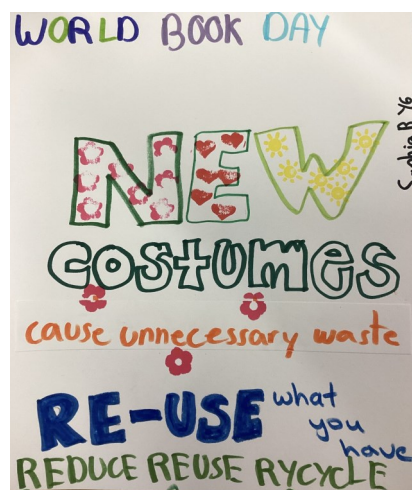 WORLD BOOK DAY
NEW
COSTUMES
cause unnecessary waste
RE-USE what
you
have
REDUCE REUSE RYCYCLE
R Y6